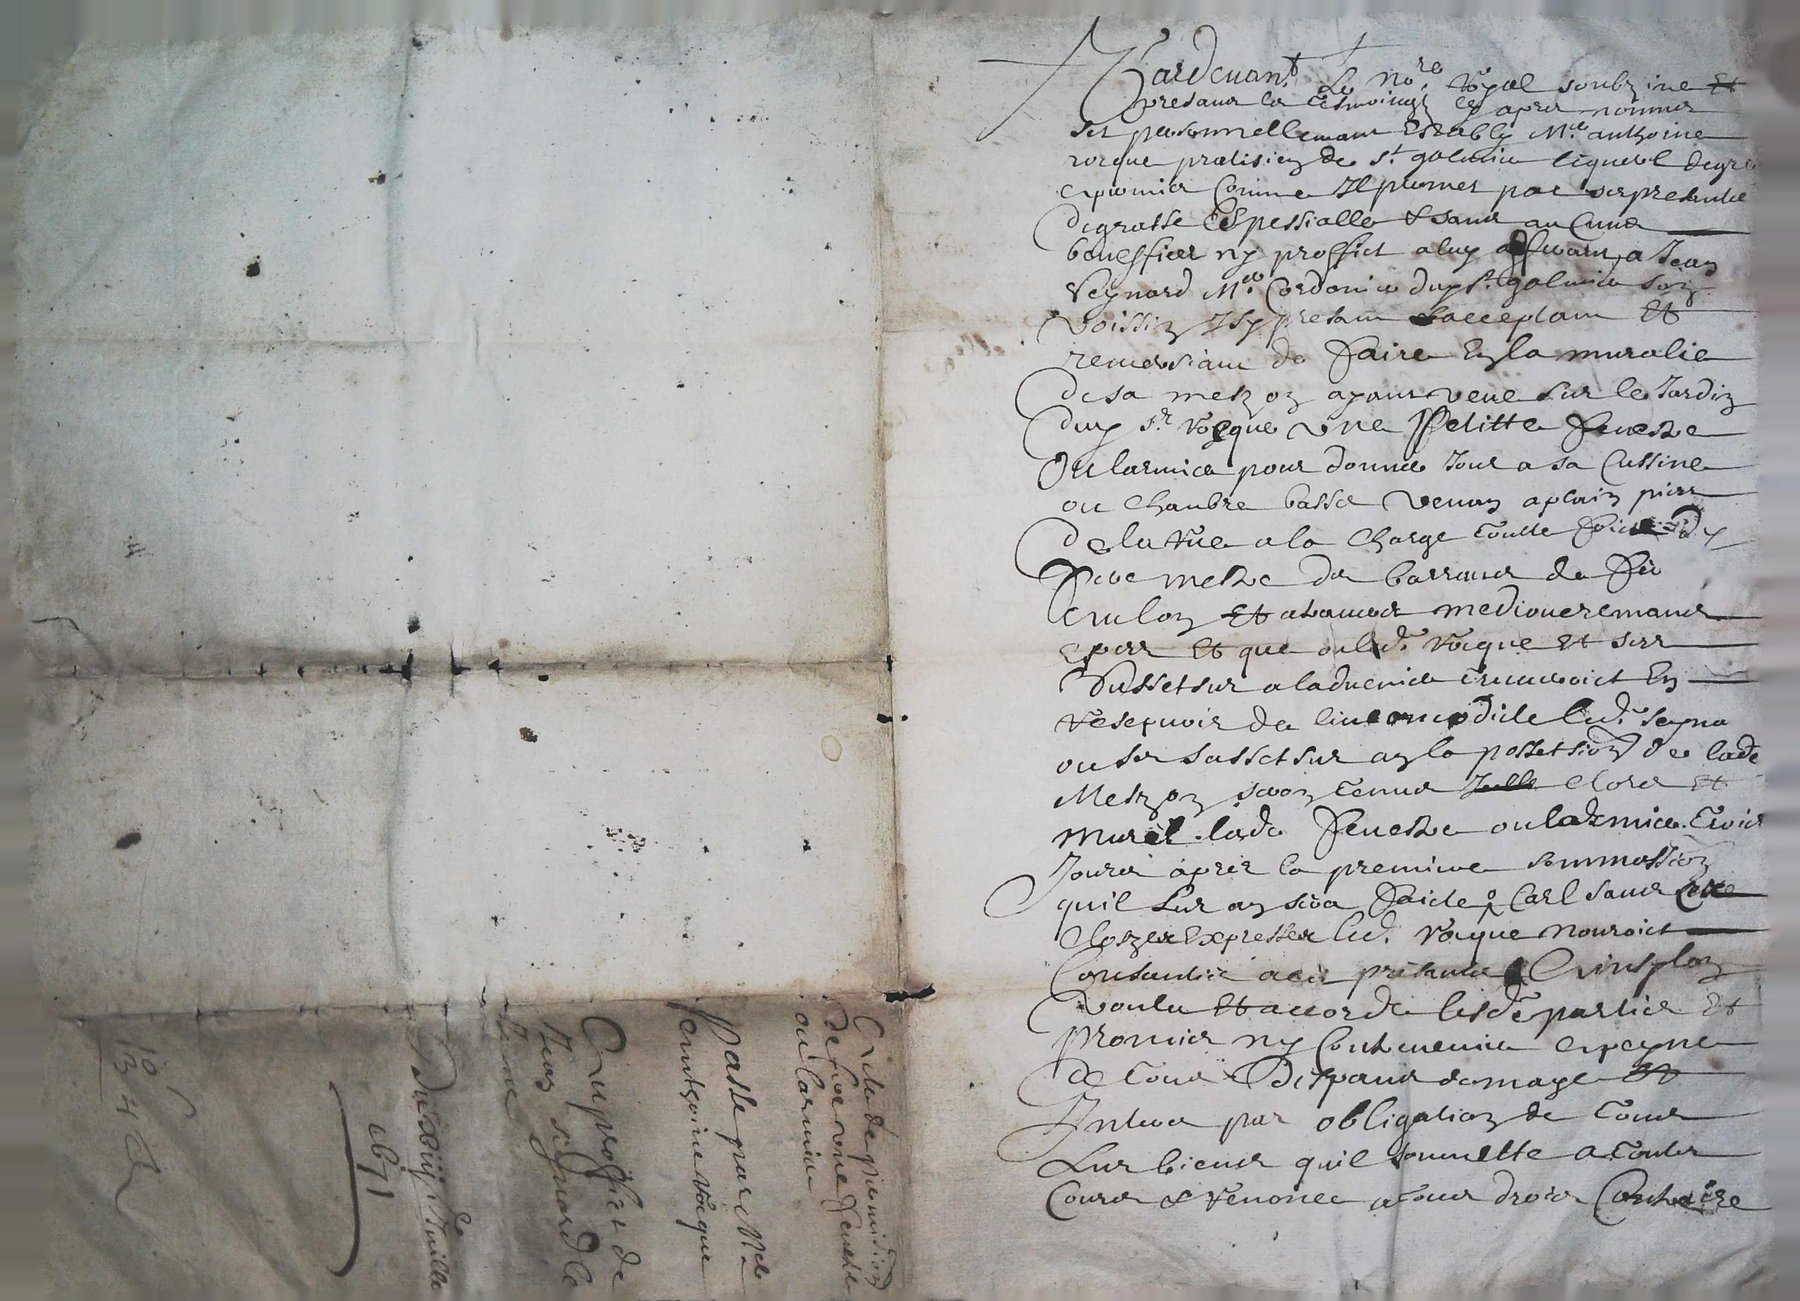 Pardevant Le No.re Royal soubzine et
presant les tesmoingz cy apres nommes
set personnellemant Estably M.e anthoine
rocque pratisien de S.t galmier lequel de gre
a promis comme Il promet par ses presantes
de grasse Espessialle & sans aucune
beneffice ny proffict a luy a Jean
Reynard M.e Cordonier dud St galmier son
voissin Isy presant & acceptant Et
remersiant de faire En la muralie
de sa meson ayant veue sur le Jardin
dud S.r rocque une Petitte fenestre
Ou larmier pour donner Jour a sa Cussine
ou Chambre basse a plain pied
De la rue a la Charge
metre de barraux de fer
Et
Et que ou led. rocque Et ses
sussetsur a ladvenir En
de lincomodite led. reyna
ou ses sussetsur en la possetsion de lade
Meson seron tenus clore et
murer lade fenestre ou ladmier trois
Jours apres la premiere sommassion
quil Lur en sera faicte Carl sans cette
Closze Expresse led. rocque nouroict
Consantir aux presantes & Ainsy lon
voulu Et accorde lesde parties Et
Promis ny Contrevenir a peyne
de tous despans domage Et
Interes par obligation de tous
Lur biens quil soumette a toutes
Cours & renonce a tous droict Contraire
de permission
de faire une fenestre
ou larmier
Passe par M.e
anthoine rocque
Au proffict de
Jean reynard le
Jeune
Du Juillet
1671
134